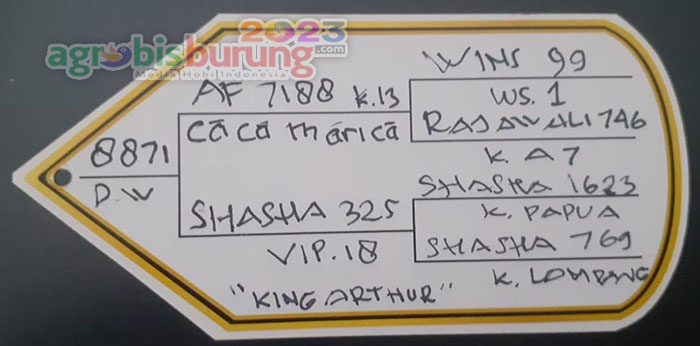 2023
agrobisburung.com
Media Hobi Indonesia
WINS 99
AF 7188 K.13
WS. 1
CaCa maricā
RAJAWALI 746
8871
K. A7
D.W
SHASHA 1623
SHASHA 325
K. PAPUA
VIP. 18
SHASHA 769
K. LOMBANG
"KING ARTHUR"